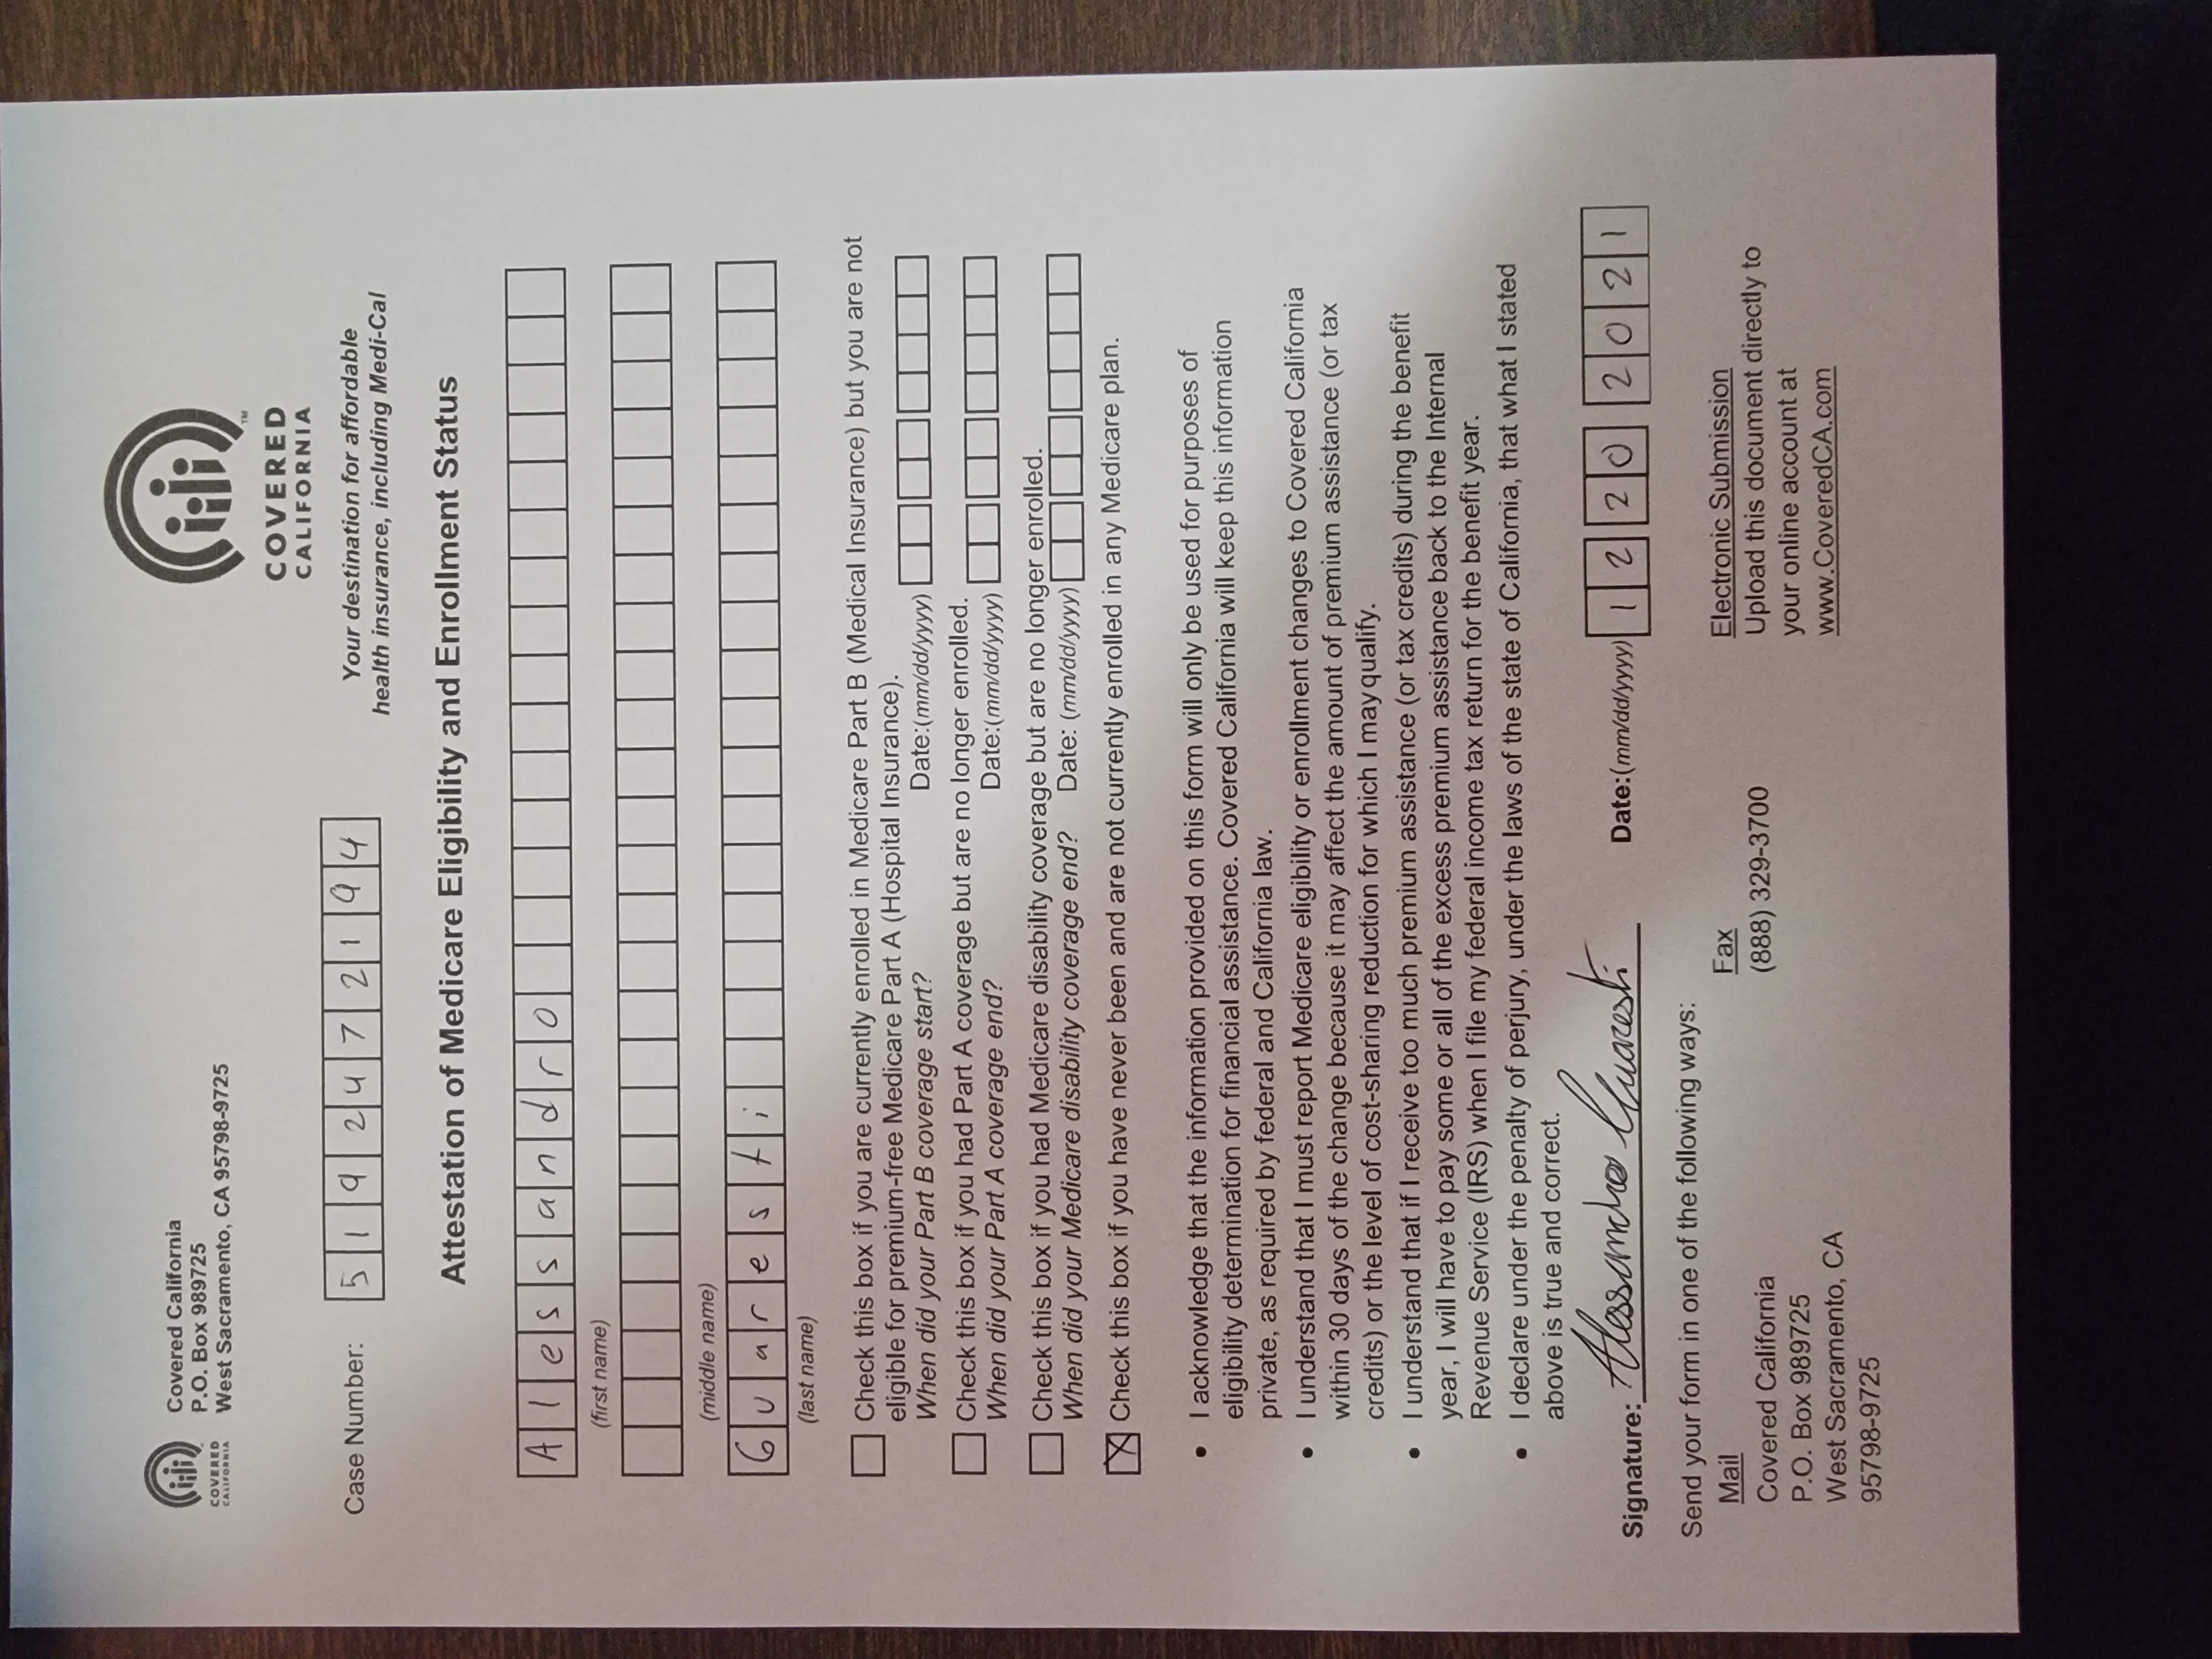 COVERED
CALIFORNIA
Covered California
P.O. Box 989725
West Sacramento, CA 95798-9725
COVERED
CALIFORNIA
TM
Your destination for affordable
health insurance, including Medi-Cal
Case Number: 5192472194
Attestation of Medicare Eligibility and Enrollment Status
Alessandro
(first name)
(middle name)
Guaresti
(last name)
Check this box if you are currently enrolled in Medicare Part B (Medical Insurance) but you are not
eligible for premium-free Medicare Part A (Hospital Insurance).
When did your Part B coverage start? Date:(mm/dd/yyyy)
Check this box if you had Part A coverage but are no longer enrolled.
When did your Part A coverage end? Date:(mm/dd/yyyy)
Check this box if you had Medicare disability coverage but are no longer enrolled.
When did your Medicare disability coverage end? Date: (mm/dd/yyyy)
X Check this box if you have never been and are not currently enrolled in any Medicare plan.
• I acknowledge that the information provided on this form will only be used for purposes of
eligibility determination for financial assistance. Covered California will keep this information
private, as required by federal and California law.
• I understand that I must report Medicare eligibility or enrollment changes to Covered California
within 30 days of the change because it may affect the amount of premium assistance (or tax
credits) or the level of cost-sharing reduction for which I may qualify.
• I understand that if I receive too much premium assistance (or tax credits) during the benefit
year, I will have to pay some or all of the excess premium assistance back to the Internal
Revenue Service (IRS) when I file my federal income tax return for the benefit year.
• I declare under the penalty of perjury, under the laws of the state of California, that what I stated
above is true and correct.
Signature: Alessandro Guaresti Date:(mm/dd/yyyy) 12 20 2021
Send your form in one of the following ways:
Mail
Covered California
P.O. Box 989725
West Sacramento, CA
95798-9725
Fax
(888) 329-3700
Electronic Submission
Upload this document directly to
your online account at
www.CoveredCA.com